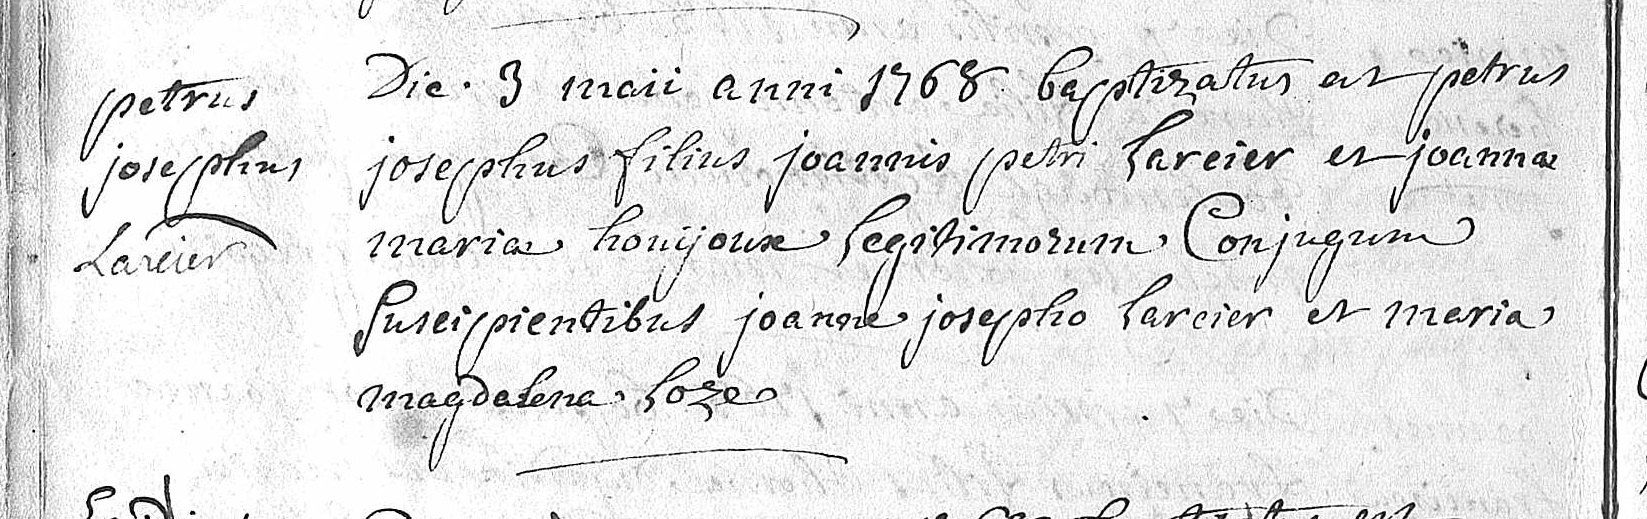 petrus
josephus
Larcier
Die . 3 maii anni 1768 baptizatus est petrus
josephus filius joannis petri Larcier et joannæ
mariæ houijoux Legitimorum Conjugum
Suscipientibus joanne josepho Larcier et maria
magdalena Loze